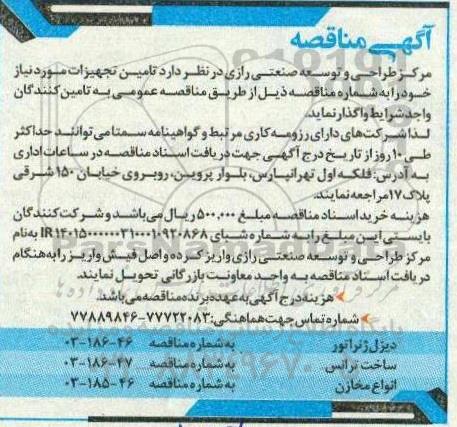 آگهی مناقصه
مرکز طراحی و توسعه صنعتی رازی در نظر دارد تامین تجهیزات مورد نیاز
خود را به شماره مناقصه ذیل از طریق مناقصه عمومی به تامین کنندگان
واجد شرایط واگذار نماید.
لذا شرکت‌های دارای رزومه کاری مرتبط و گواهینامه سمتا می‌توانند حداکثر
طی ۱۰ روز از تاریخ درج آگهی جهت دریافت اسناد مناقصه در ساعات اداری
به آدرس: فلکه اول تهرانپارس، بلوار پروین، روبروی خیابان ۱۵۰ شرقی
پلاک ۱۷ مراجعه نمایند.
هزینه خرید اسناد مناقصه مبلغ ۵۰۰,۰۰۰ ریال می‌باشد و شرکت کنندگان
بایستی این مبلغ را به شماره شبای IR۱۴۰۱۵۰۰۰۰۰۰۰۳۱۰۰۰۱۰۹۲۰۸۶۸ به نام
مرکز طراحی و توسعه صنعتی رازی واریز کرده و اصل فیش واریز را به هنگام
دریافت اسناد مناقصه به واحد معاونت بازرگانی تحویل نمایند.
هزینه درج آگهی به عهده برنده مناقصه می‌باشد.
شماره تماس جهت هماهنگی: ۷۷۷۲۲۰۸۳-۷۷۸۸۹۸۴۶
دیزل ژنراتور به شماره مناقصه ۴۶-۱۸۶-۰۳
ساخت ترانس به شماره مناقصه ۴۷-۱۸۶-۰۳
انواع مخازن به شماره مناقصه ۴۶-۱۸۵-۰۳